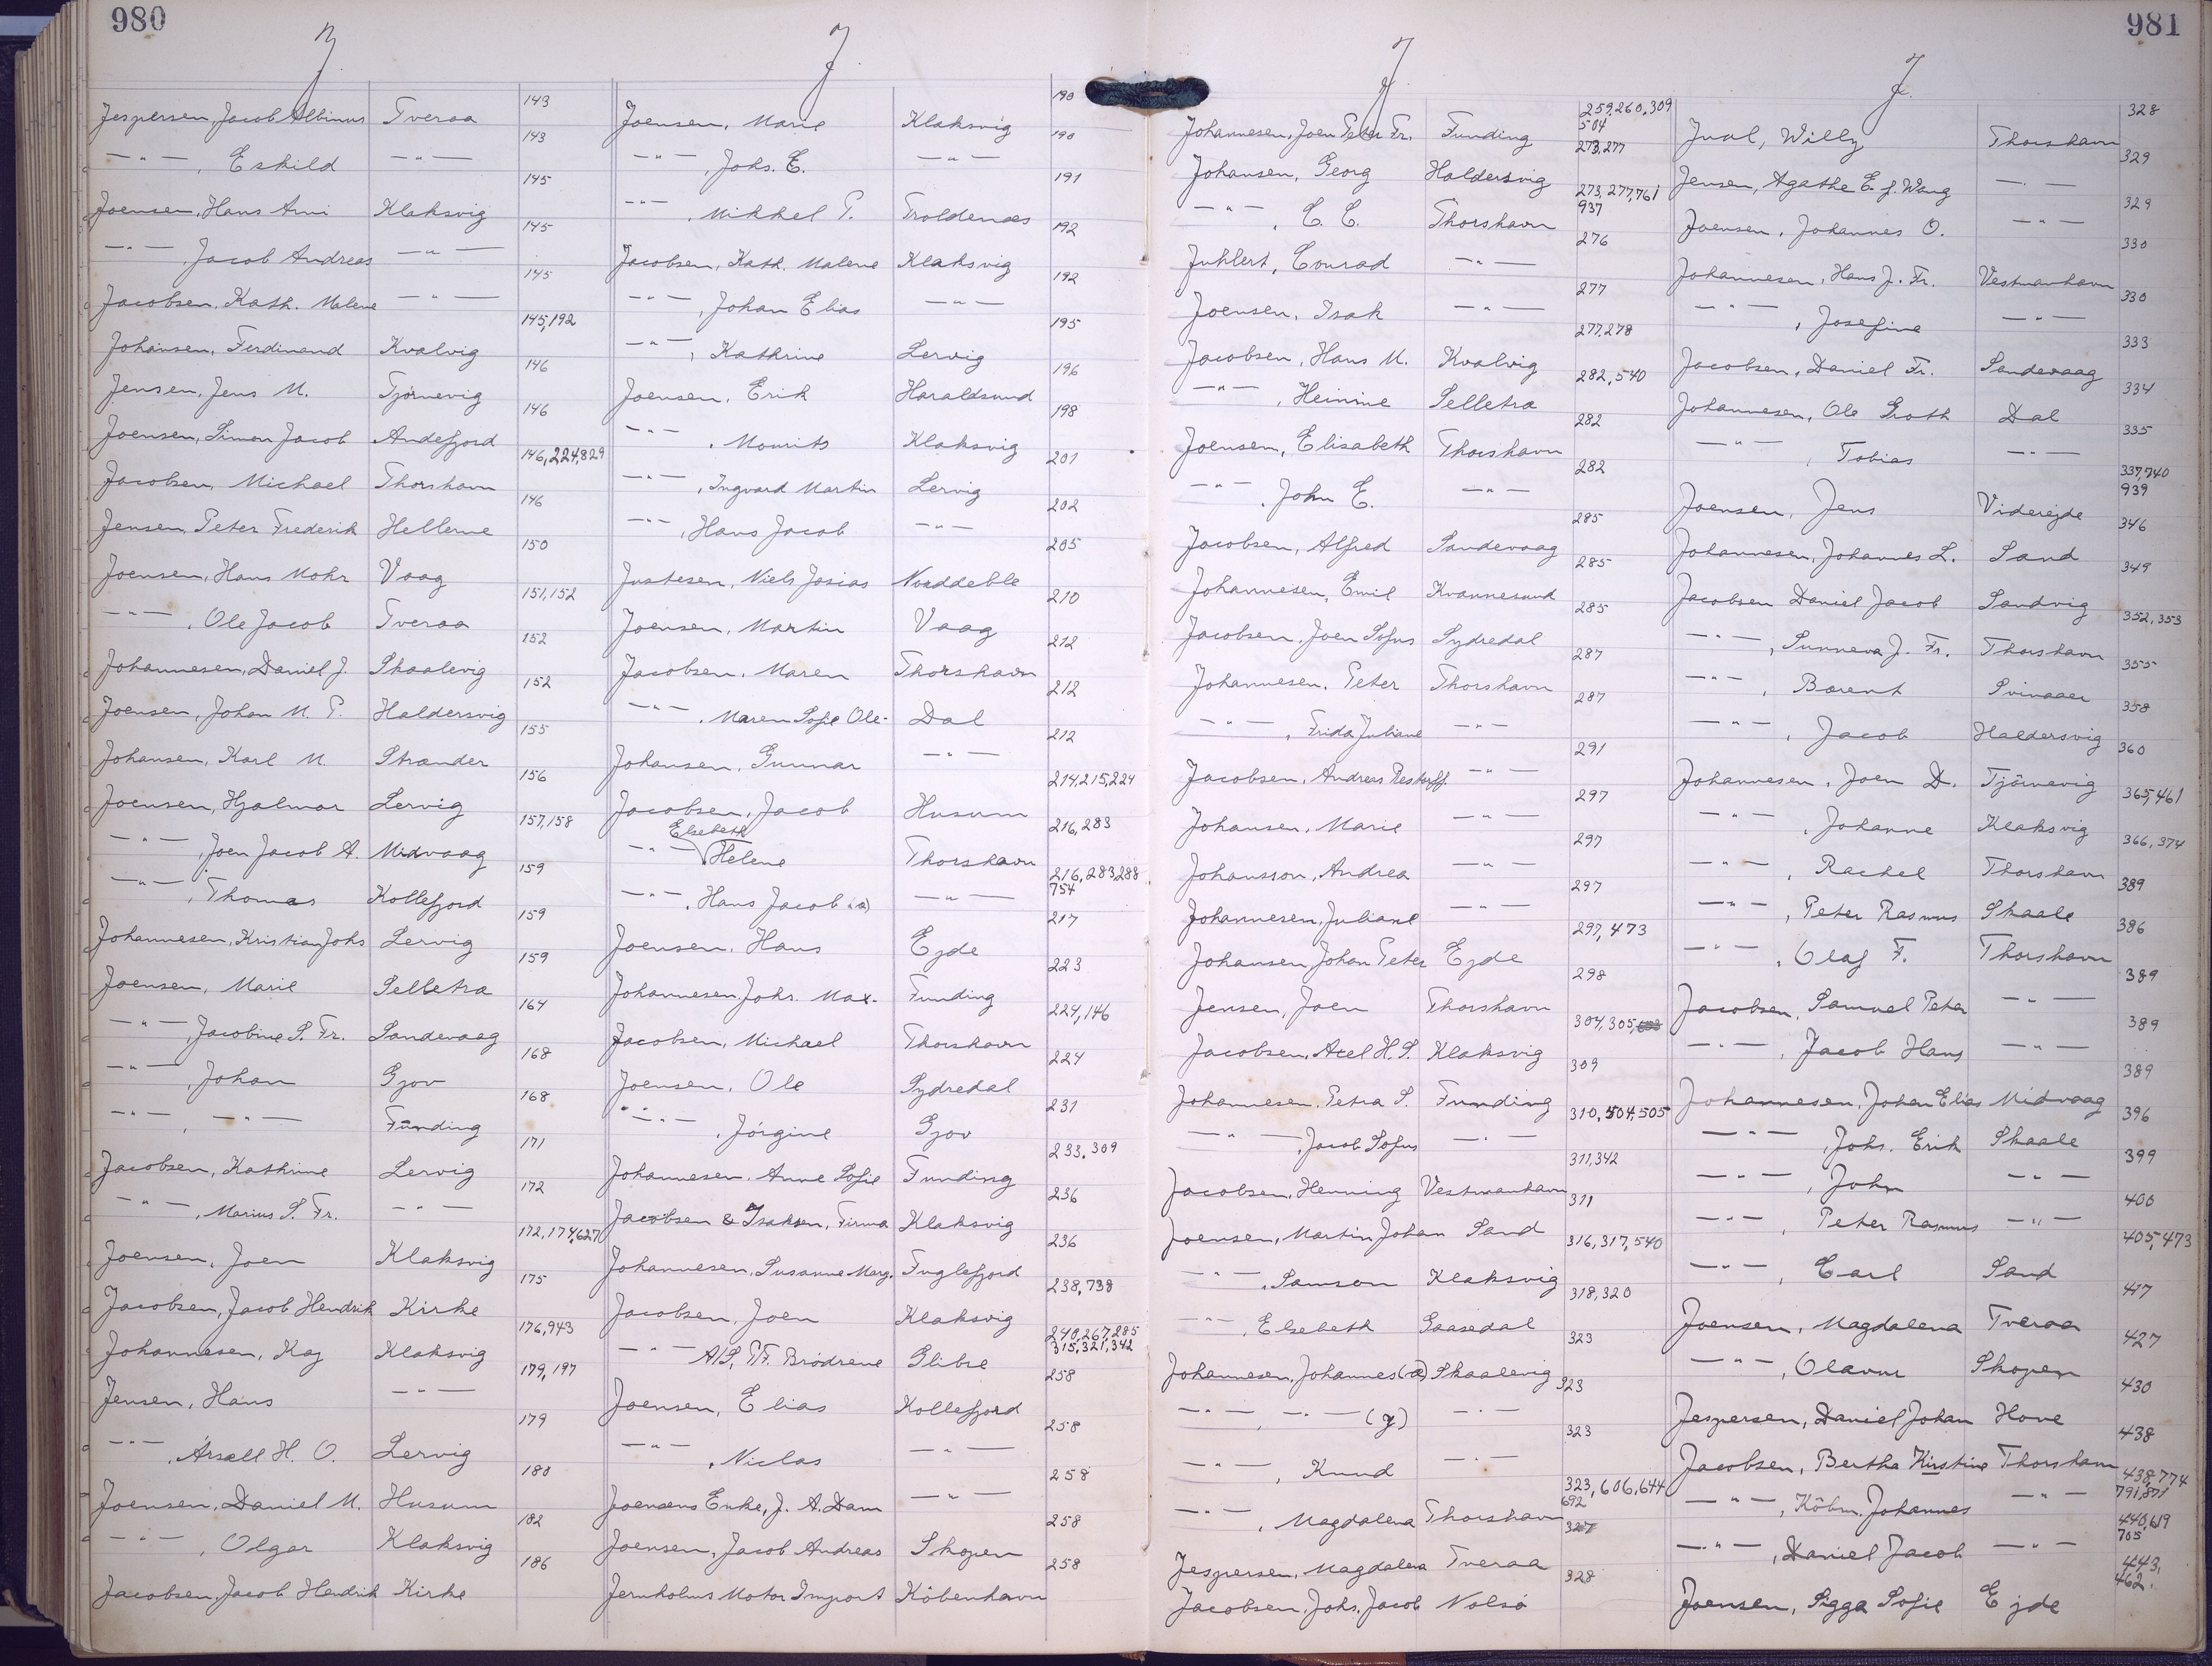 980
J
J
Jespersen, Jacob Albinus Tveraa 143
—"—, Eskild —"— 143
Joensen, Hans Arni Klaksvig 145
—"—, Jacob Andreas —"— 145
Jacobsen, Kath. Malene —"— 145
Johansen, Ferdinand Kvalvig 145,192
Jensen, Jens M. Tjørnevig 146
Joensen, Simon Jacob Andefjord 146
Jacobsen, Michael Thorshavn 146,224,829
Jensen, Peter Frederik Hellerne 146
Joensen, Hans Mohr Vaag 150
—"—, Ole Jacob Tveraa 151,152
Johannesen, Daniel J. Skaalevig 152
Joensen, Johan M. P. Haldersvig 152
Johansen, Karl M. Strænder 155
Joensen, Hjalmar Lervig 156
—"—, Joen Jacob A. Midvaag 157,158
—"—, Thomas Kollefjord 159
Johannesen, Kristian Johs Lervig 159
Joensen, Marie Selletra 159
—"—, Jacobine S. Fr. Sandevaag 164
—"—, Johan Gjov 168
—"—, —"— Funding 168
Jacobsen, Kathrine Lervig 171
—"—, Marius S. Fr. —"— 172
Joensen, Joen Klaksvig 172,174,627
Jacobsen, Jacob Hendrik Kirke 175
Johannesen, Kaj Klaksvig 176,943
Jensen, Hans —"— 179,197
—"—, Arsæll H. O. Lervig 179
Joensen, Daniel M. Husum 180
—"—, Olgar Klaksvig 182
Jacobsen, Jacob Hendrik Kirke 186
Joensen, Marie Klaksvig 190
—"—, Johs. E. —"— 190
—"—, Mikkel P. Troldenæs 191
Jacobsen, Kath. Malene Klaksvig 192
—"—, Johan Elias —"— 192
—"—, Kathrine Lervig 195
Joensen, Erik Haraldsund 196
—"—, Mourits Klaksvig 198
—"—, Ingvard Martin Lervig 201
—"—, Hans Jacob —"— 202
Justesen, Niels Josias Norddeble 205
Joensen, Martin Vaag 210
Jacobsen, Maren Thorshavn 212
—"—, Maren Sofie Ole- Dal 212
Johansen, Gunnar —"— 212
Jacobsen, Jacob Husum 214,215,224
—"— Elsebeth Helene Thorshavn 216,283
—"—, Hans Jacob (a) —"— 216,283,288 754
Joensen, Hans Ejde 217
Johannesen, Johs. Max. Funding 223
Jacobsen, Michael Thorshavn 224,146
Joensen, Ole Sydredal 224
—"—, Jórgine Gjov 231
Johannesen, Anne Sofie Funding 233,309
Jacobsen & Isaksen, Firma Klaksvig 236
Johannesen, Susanne Marg. Fuglefjord 236
Jacobsen, Joen Klaksvig 238,738
—"— A/S, P/F. Brödrene Glibre 240,267,285 315,321,342
Joensen, Elias Kollefjord 258
—"—, Niclas —"— 258
Joensens Enke, J. A. Dam —"— 258
Joensen, Jacob Andreas Skopen 258
Jernholms Motor Import Köbenhavn 258
981
J
J.
Johannesen, Joen Peter Fr. Funding 259,260,309 504
Johansen, Georg Haldersvig 273,277
—"—, C. C. Thorshavn 273,277,761 937
Juhlert, Conrad —"— 276
Joensen, Isak —"— 277
Jacobsen, Hans M. Kvalvig 277,278
—"—, Heinine Selletra 282,540
Joensen, Elisabeth Thorshavn 282
—"—, John E. —"— 282
Jacobsen, Alfred Sandevaag 285
Johannesen, Emil Kvannesund 285
Jacobsen, Joen Sofus Sydredal 285
Johannesen, Peter Thorshavn 287
—"—, Frida Juliane —"— 287
Jacobsen, Andreas Restorff —"— 291
Johansen, Marie —"— 297
Johansson, Andrea —"— 297
Johannesen, Juliane —"— 297
Johansen, Johan Peter Ejde 297,473
Jensen, Joen Thorshavn 298
Jacobsen, Axel H. P. Klaksvig 304,305
Johannesen, Petra S. Funding 309
—"—, Jacob Sofus —"— 310,504,505
Jacobsen, Henning Vestmanhavn 311,342
Joensen, Martin Johan Sand 311
—"—, Samson Klaksvig 316,317,540
—"—, Elsebeth Gaasedal 318,320
Johannesen, Johannes (a) Skaalevig 323
—"—, —"— (g) —"— 323
—"—, Knud —"— 323
—"—, Magdalena Thorshavn 323,606,644 692
Jespersen, Magdalena Tveraa 327
Jacobsen, Johs. Jacob Nolsö 328
Juul, Willy Thorshavn 328
Jensen, Agathe E. f. Wang —"— 329
Joensen, Johannes O. —"— 329
Johannesen, Hans J. Fr. Vestmanhavn 330
—"—, Josefine —"— 330
Jacobsen, Daniel Fr. Sandevaag 333
Johannesen, Ole Groth Dal 334
—"—, Tobias —"— 335
Joensen, Jens Viderejde 337,740 939
Johannesen, Johannes L. Sand 346
Jacobsen Daniel Jacob Sandvig 349
—"—, Sunneva J. Fr. Thorshavn 352,353
—"—, Barent Svinaaer 355
—"—, Jacob Haldersvig 358
Johannesen, Joen D. Tjörnevig 360
—"—, Johanne Klaksvig 365,461
—"—, Rachel Thorshavn 366,374
—"—, Peter Rasmus Skaale 389
—"—, Olaf F. Thorshavn 386
Jacobsen, Samuel Peter —"— 389
—"—, Jacob Hans —"— 389
Johannesen, Johan Elias Midvaag 389
—"—, Johs. Erik Skaale 396
—"—, John —"— 399
—"—, Peter Rasmus —"— 400
—"—, Carl Sand 405,473
Joensen, Magdalena Tveraa 417
—"—, Olavur Skopen 427
Jespersen, Daniel Johan Hove 430
Jacobsen, Bertha Kirstine Thorshavn 438
—"—, Köbm. Johannes —"— 438,774 791,871
—"—, Daniel Jacob —"— 440,619 705
Joensen, Sigga Sofie Ejde 443, 462.